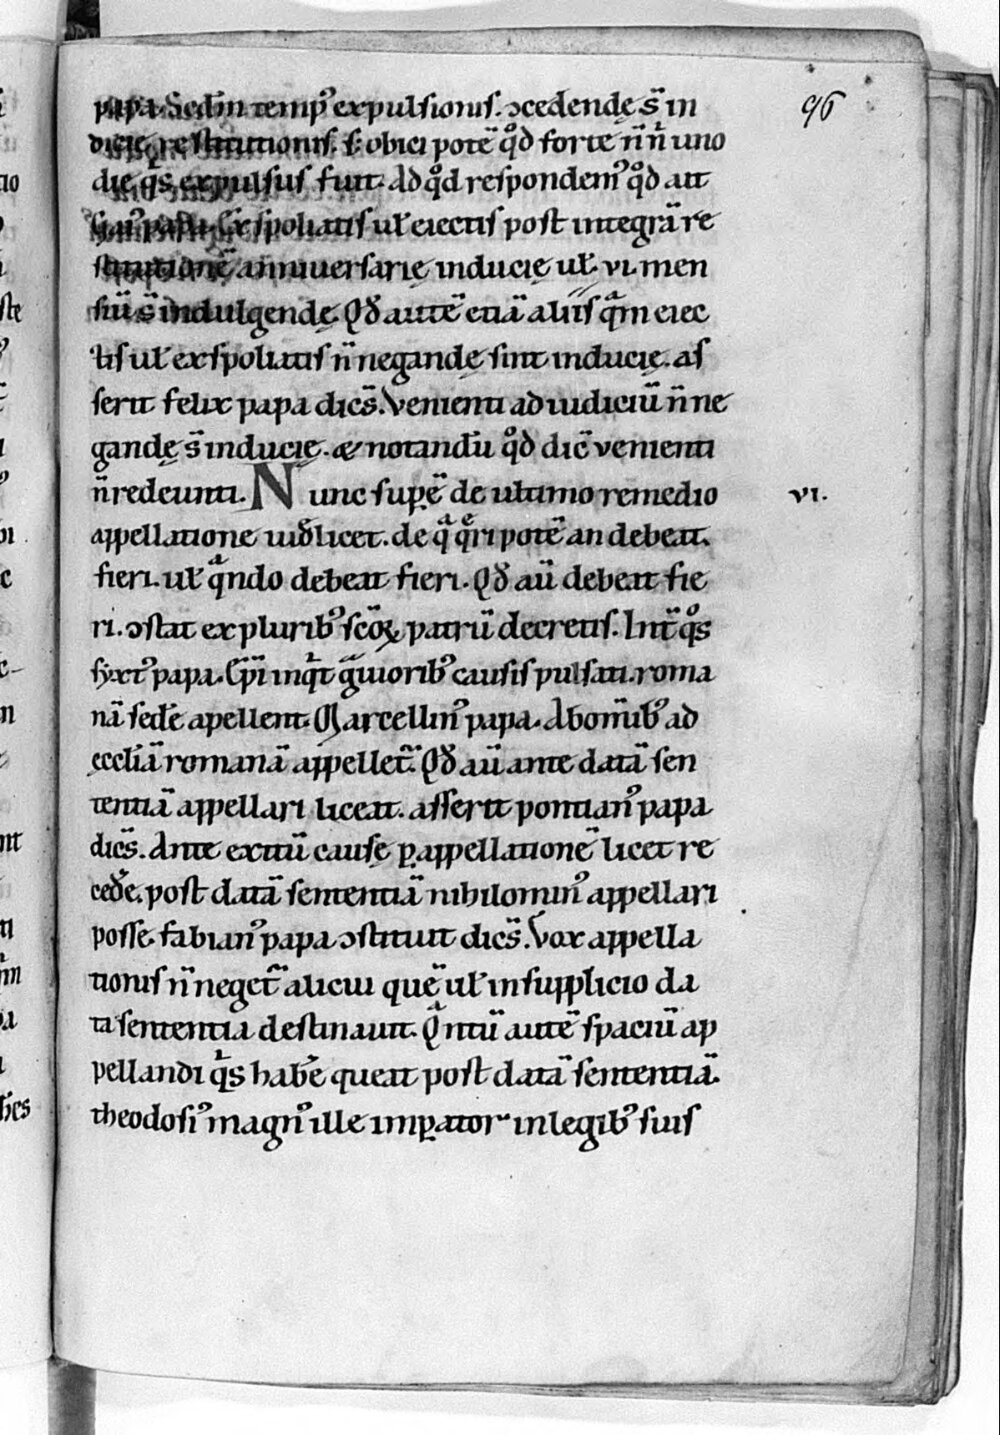 papa. Scdm temp᾽ expulsionis. ɔcedendę s̄ in
dicię restitutionis. s; obici potē qͦd forte n̄ nͥ uno
die qͥs expulsus fuit. Ad qͦd respondem᾽ qͦd ait
Gai᾽ papa. Exspoliatis uł eiectis post integrā re
stitutionē anniuersarię inducię uł .vi. men
siū s̄ indulgendę. Qđ autē etiā aliis qͣm eiec
tis uł exspoliatis n̄ negandę sint inducię. as
serit felix papa dicēs. Venienti ad iudiciū n̄ ne
gandę s̄ inducię. & notandū qͦd dič venienti
n̄ redeunti. Nunc supē de ultimo remedio
appellatione uiđlicet. de qͣ qͥri potē an debeat
fieri. uł qͣndo debeat fieri. Qđ aū debeat fie
ri. ɔstat ex plurib᾽ scōꝝ patrū decretis. Int̄ qͦs
syxt᾽ papa. Ep̄i inqͥt gͣuiorib᾽ causis pulsati. roma
nā sedē apellent. Marcellin᾽ papa. Ab omīb᾽ ad
ęccliā romanā appellet̄. Qđ aū ante datā sen
tentiā appellari liceat. asserit pontian᾽ papa
dicēs. Ante exitū causę ꝑ appellationē licet re
cedē. post datā sententiā nihilomin᾽ appellari
posse. fabian᾽ papa ɔstituit dicēs. Vox appella
tionis n̄ neget̄ alicui quē uł in supplicio da
ta sententia destinauit. Qͣntū autē spaciū ap
pellandi qͥs habē queat post datā sententiā.
theodosi᾽ magn᾽ ille imꝑator in legib᾽ suis
96
vi.